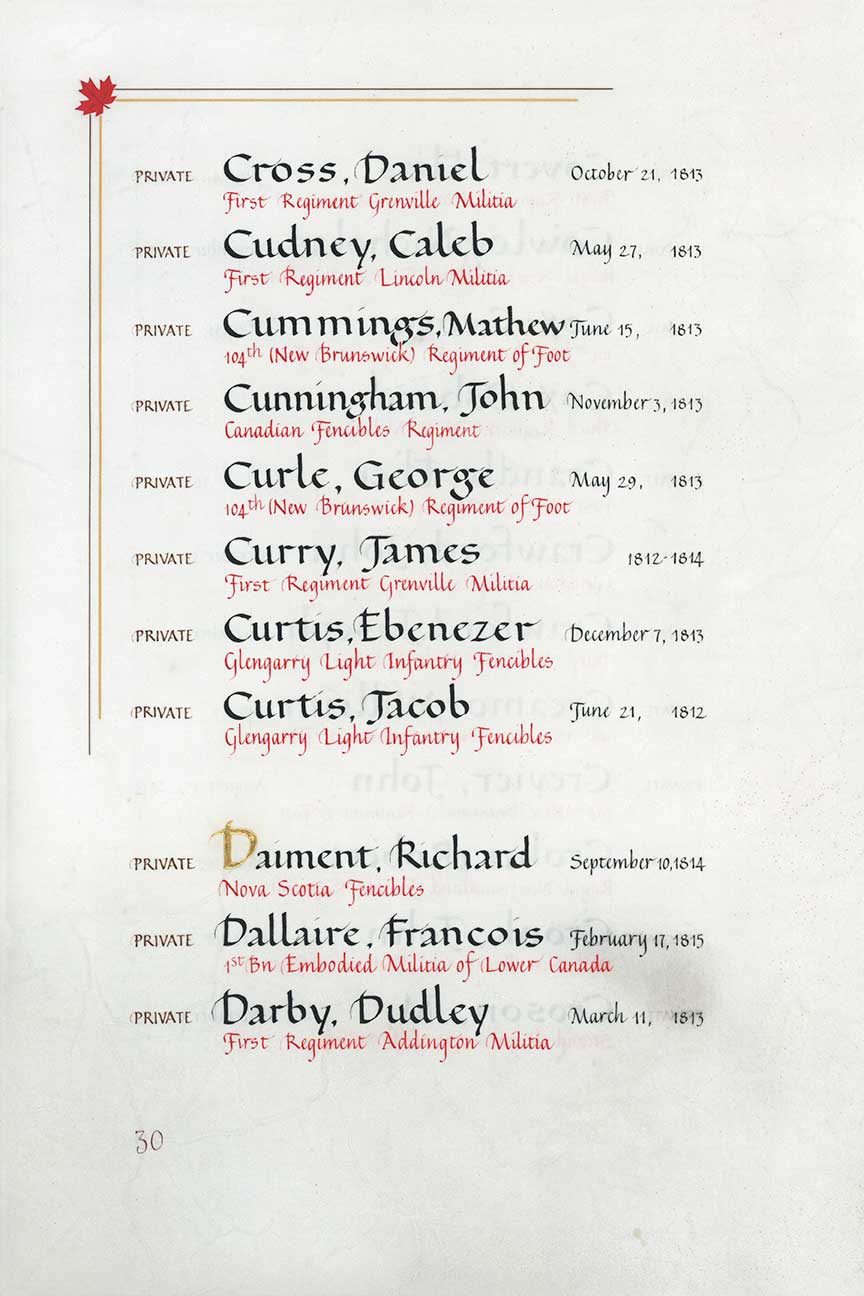 PRIVATE Cross, Daniel October 21, 1813
First Regiment Grenville Militia
PRIVATE Cudney, Caleb May 27, 1813
First Regiment Lincoln Militia
PRIVATE Cummings, Mathew June 15, 1813
104th (New Brunswick) Regiment of Foot
PRIVATE Cunningham, John November 3, 1813
Canadian Fencibles Regiment
PRIVATE Curle, George May 29, 1813
104th (New Brunswick) Regiment of Foot
PRIVATE Curry, James 1812-1814
First Regiment Grenville Militia
PRIVATE Curtis, Ebenezer December 7, 1813
Glengarry Light Infantry Fencibles
PRIVATE Curtis, Jacob June 21, 1812
Glengarry Light Infantry Fencibles
PRIVATE Daiment, Richard September 10, 1814
Nova Scotia Fencibles
PRIVATE Dallaire, Francois February 17, 1815
1st Bn Embodied Militia of Lower Canada
PRIVATE Darby, Dudley March 11, 1813
First Regiment Addington Militia
30